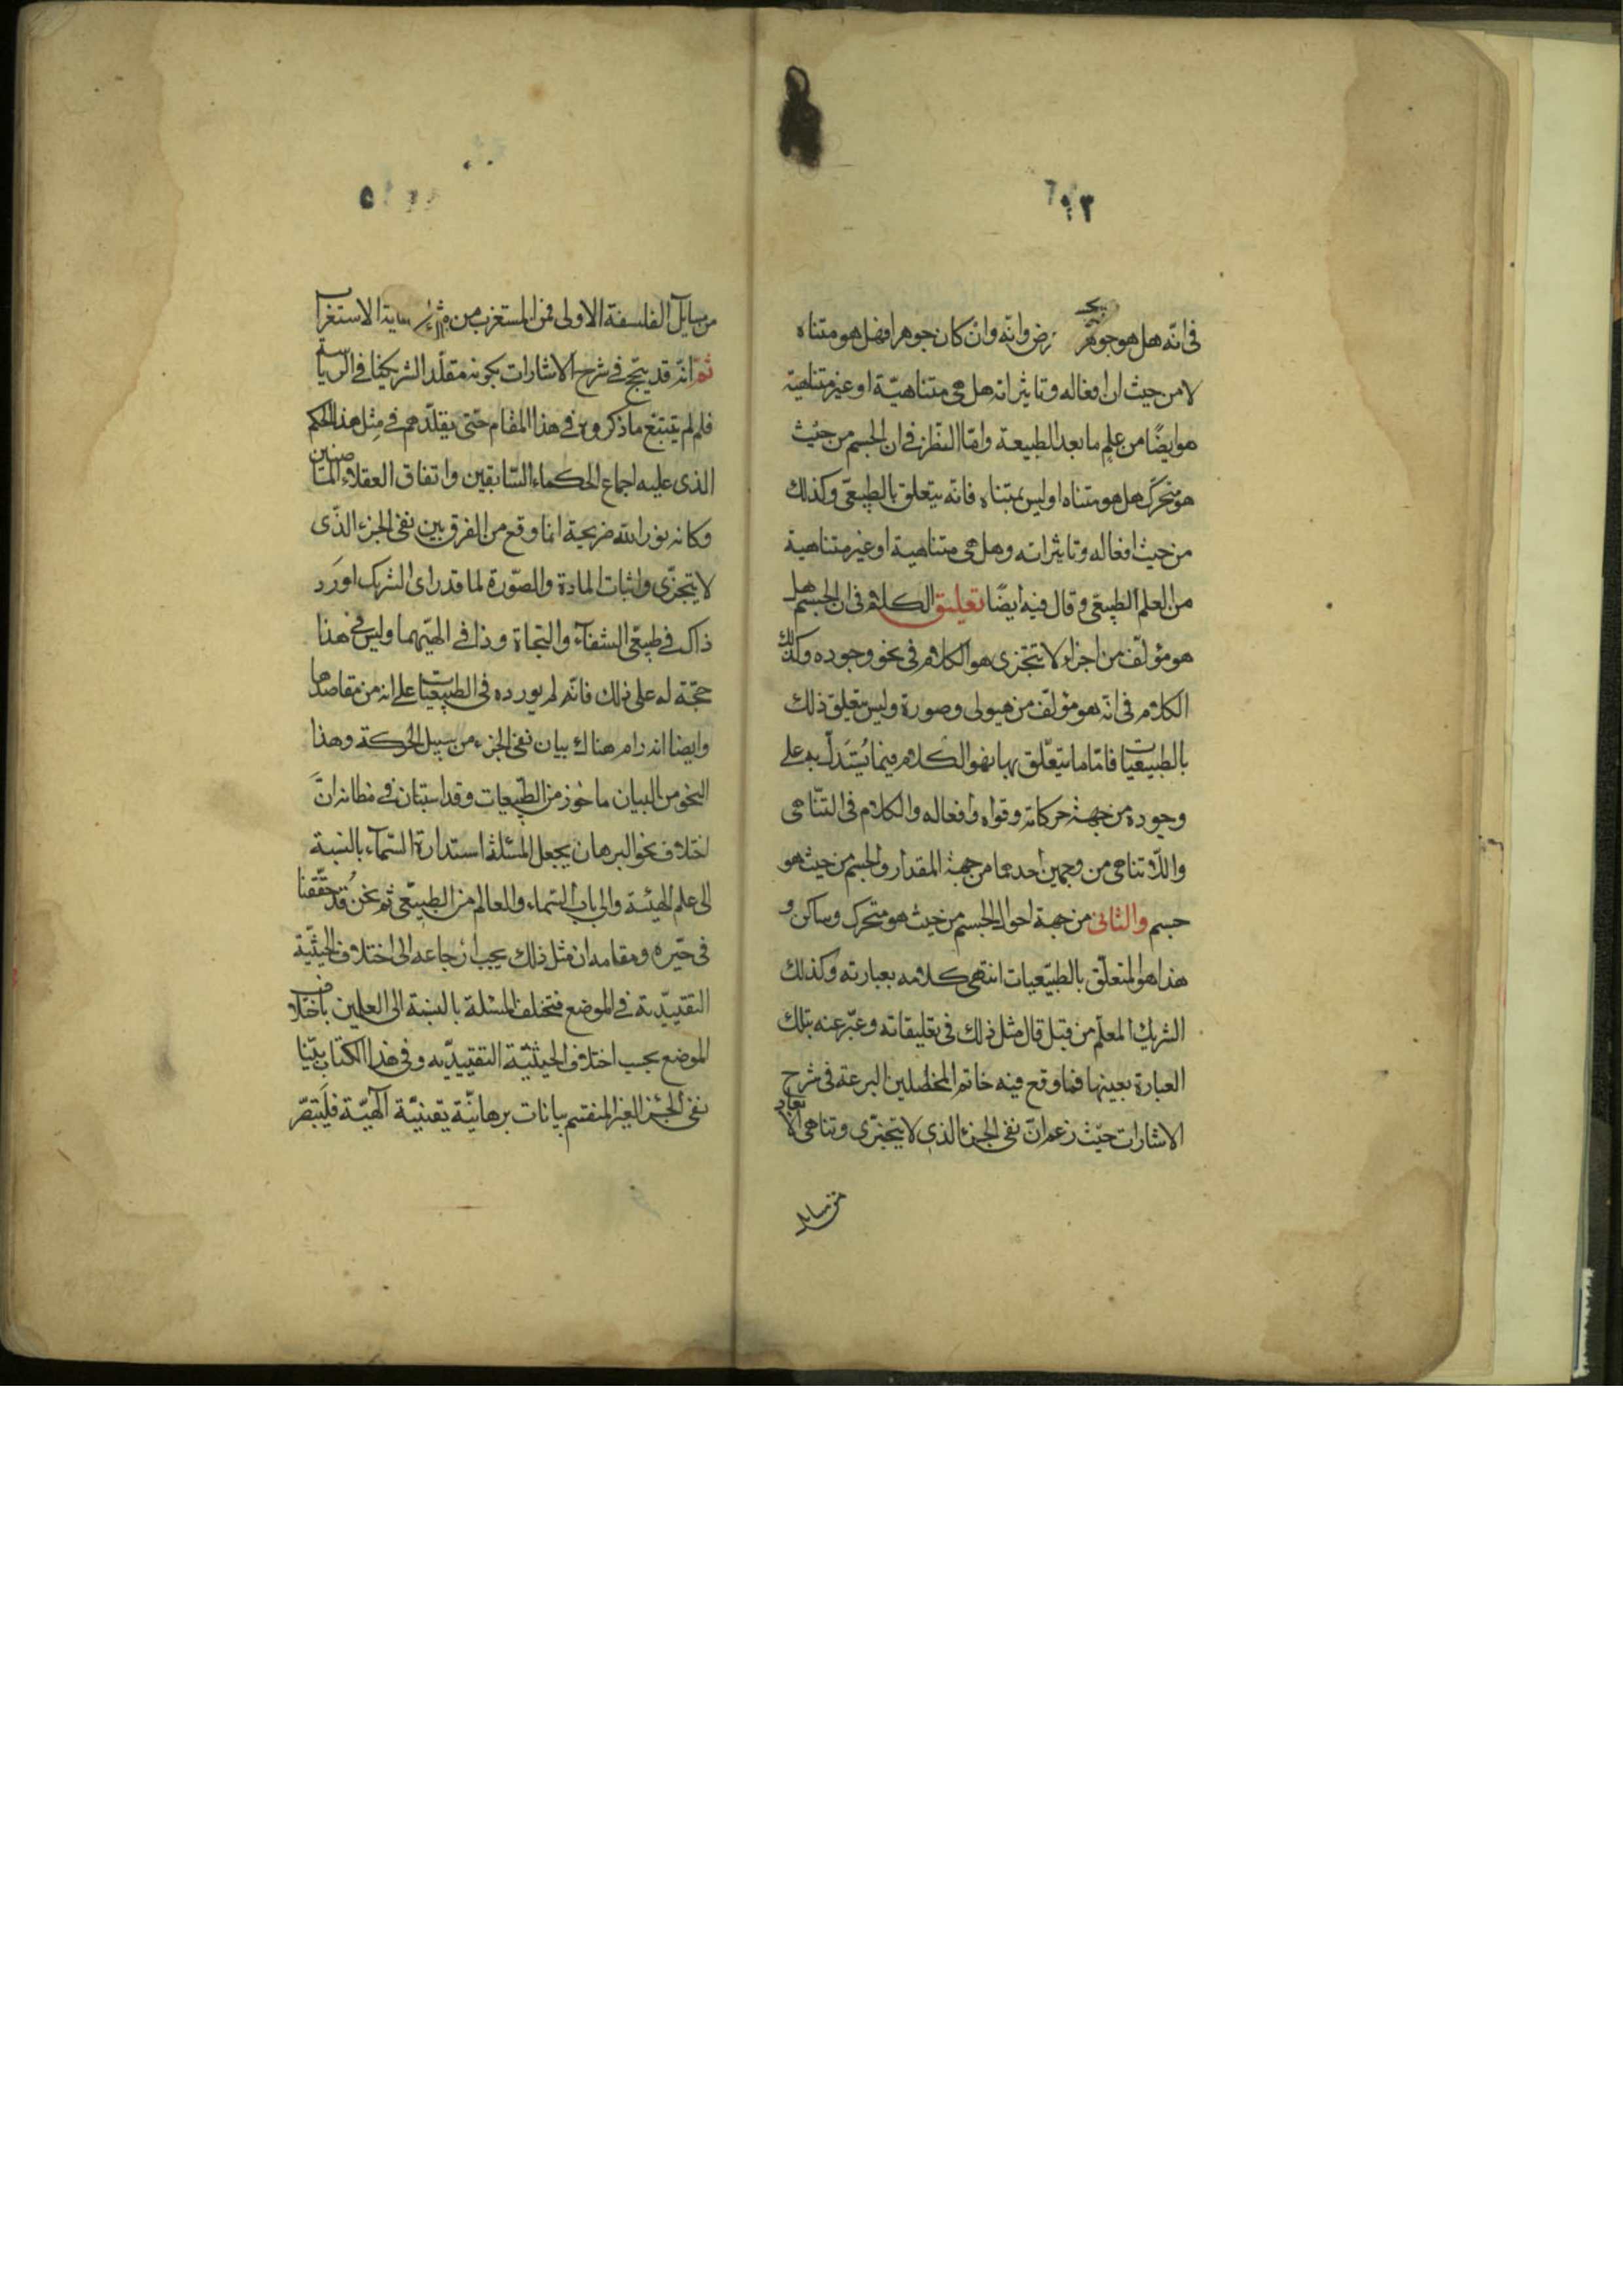 في انّه هل هو جوهر وانّه وان كان جوهرا فهل هو متناه
لا من حيث ان افعاله وتاثيراته هل هي متناهيّة او غير متناهية
هو ايضًا من علم ما بعد الطبيعة وامّا النظر في ان الجسم من حيث
هو متحرّك هل هو متناه او ليس بمتناه فانّه يتعلق بالطبيعى وكذلك
من حيث افعاله وتاثيراته وهل هي متناهية او غير متناهية
من العلم الطبيعى وقال فيه ايضًا تعليق الكلام في ان الجسم هل
هو مؤلّف من اجزاء لا يتجزى هو الكلام في نحو وجوده وكذلك
الكلام في انّه هو مؤلّف من هيولى وصورة وليس يتعلق ذلك
بالطبيعيّات فامّا ما يتعلّق بها فهو الكلام فيما يُستَدلّ به على
وجوده من جهة حركاته وقواه وافعاله والكلام في التناهى
واللّاتناهى من وجهين احدهما من جهة المقدار والجسم من حيث هو
جسم والثانى من جهة احوال الجسم من حيث هو متحرك وساكن و
هذا هو المتعلّق بالطبيّعيات انتهى كلامه بعبارته وكذلك
الشريك المعلّم من قبل قال مثل ذلك في تعليقاته وعبّر عنه بتلك
العبارة بعينها فما وقع فيه خاتم المحصلين البرعة في شرح
الاشارات حيث زعم انّ نفى الجزء الذي لا يتجزى وتناهى الابعاد
من مسايل
من مسايل الفلسفة الاولى فمن المستغرب من الاستغراب
ثمّ انّه قد في شرح الاشارات بكونه مقلّد الشريكنا في الرياسة
فلم لم يتبتع ما ذكروه في هذا المقام حتّى يقلّدهم في مثل هذا الحكم
الذى عليه اجماع الحكماء السّابقين واتفاق العقلاء
وكانه نور الله ضريحه انما وقع من الفرق بين نفى الجزء الذّى
لا يتجزّى واثبات المادة والصّورة لما قد راى الشريك اورَد
ذاك في طبيعّى الشفآء والنجاة وذا في الهيّهما وليس في هذا
حجّة له على ذلك فانّه لم يورده في الطبيعيّات على انه من مقاصدها
وايضا انه رام هناك بيان نفى الجزء من سبيل الحركة وهذا
النحو من البيان ماخوذ من الطبّيعيات وقد استبان في مظانه انّ
اختلاف نحو البرهان يجعل المسئلة استدارة السّمآء بالنسبة
الى علم الهيئة والى باب السّماء والعالم من الطبيعّى ثم نحن قد حقّقنا
في حيّزه ومقامه ان مثل ذلك يجب ارجاعه الى اختلاف الحيثيّة
التقييدّية في الموضع فتختلف المسئلة بالنسبة الى العلمين باختلاف
الموضع بحسب اختلاف الحيثيّة التقييدّيه وفي هذا الكتاب بيّنا
نفى الجزء الغير المنقسم بيانات برهانيّة يقينيّة آلهيّة فليتبصّر